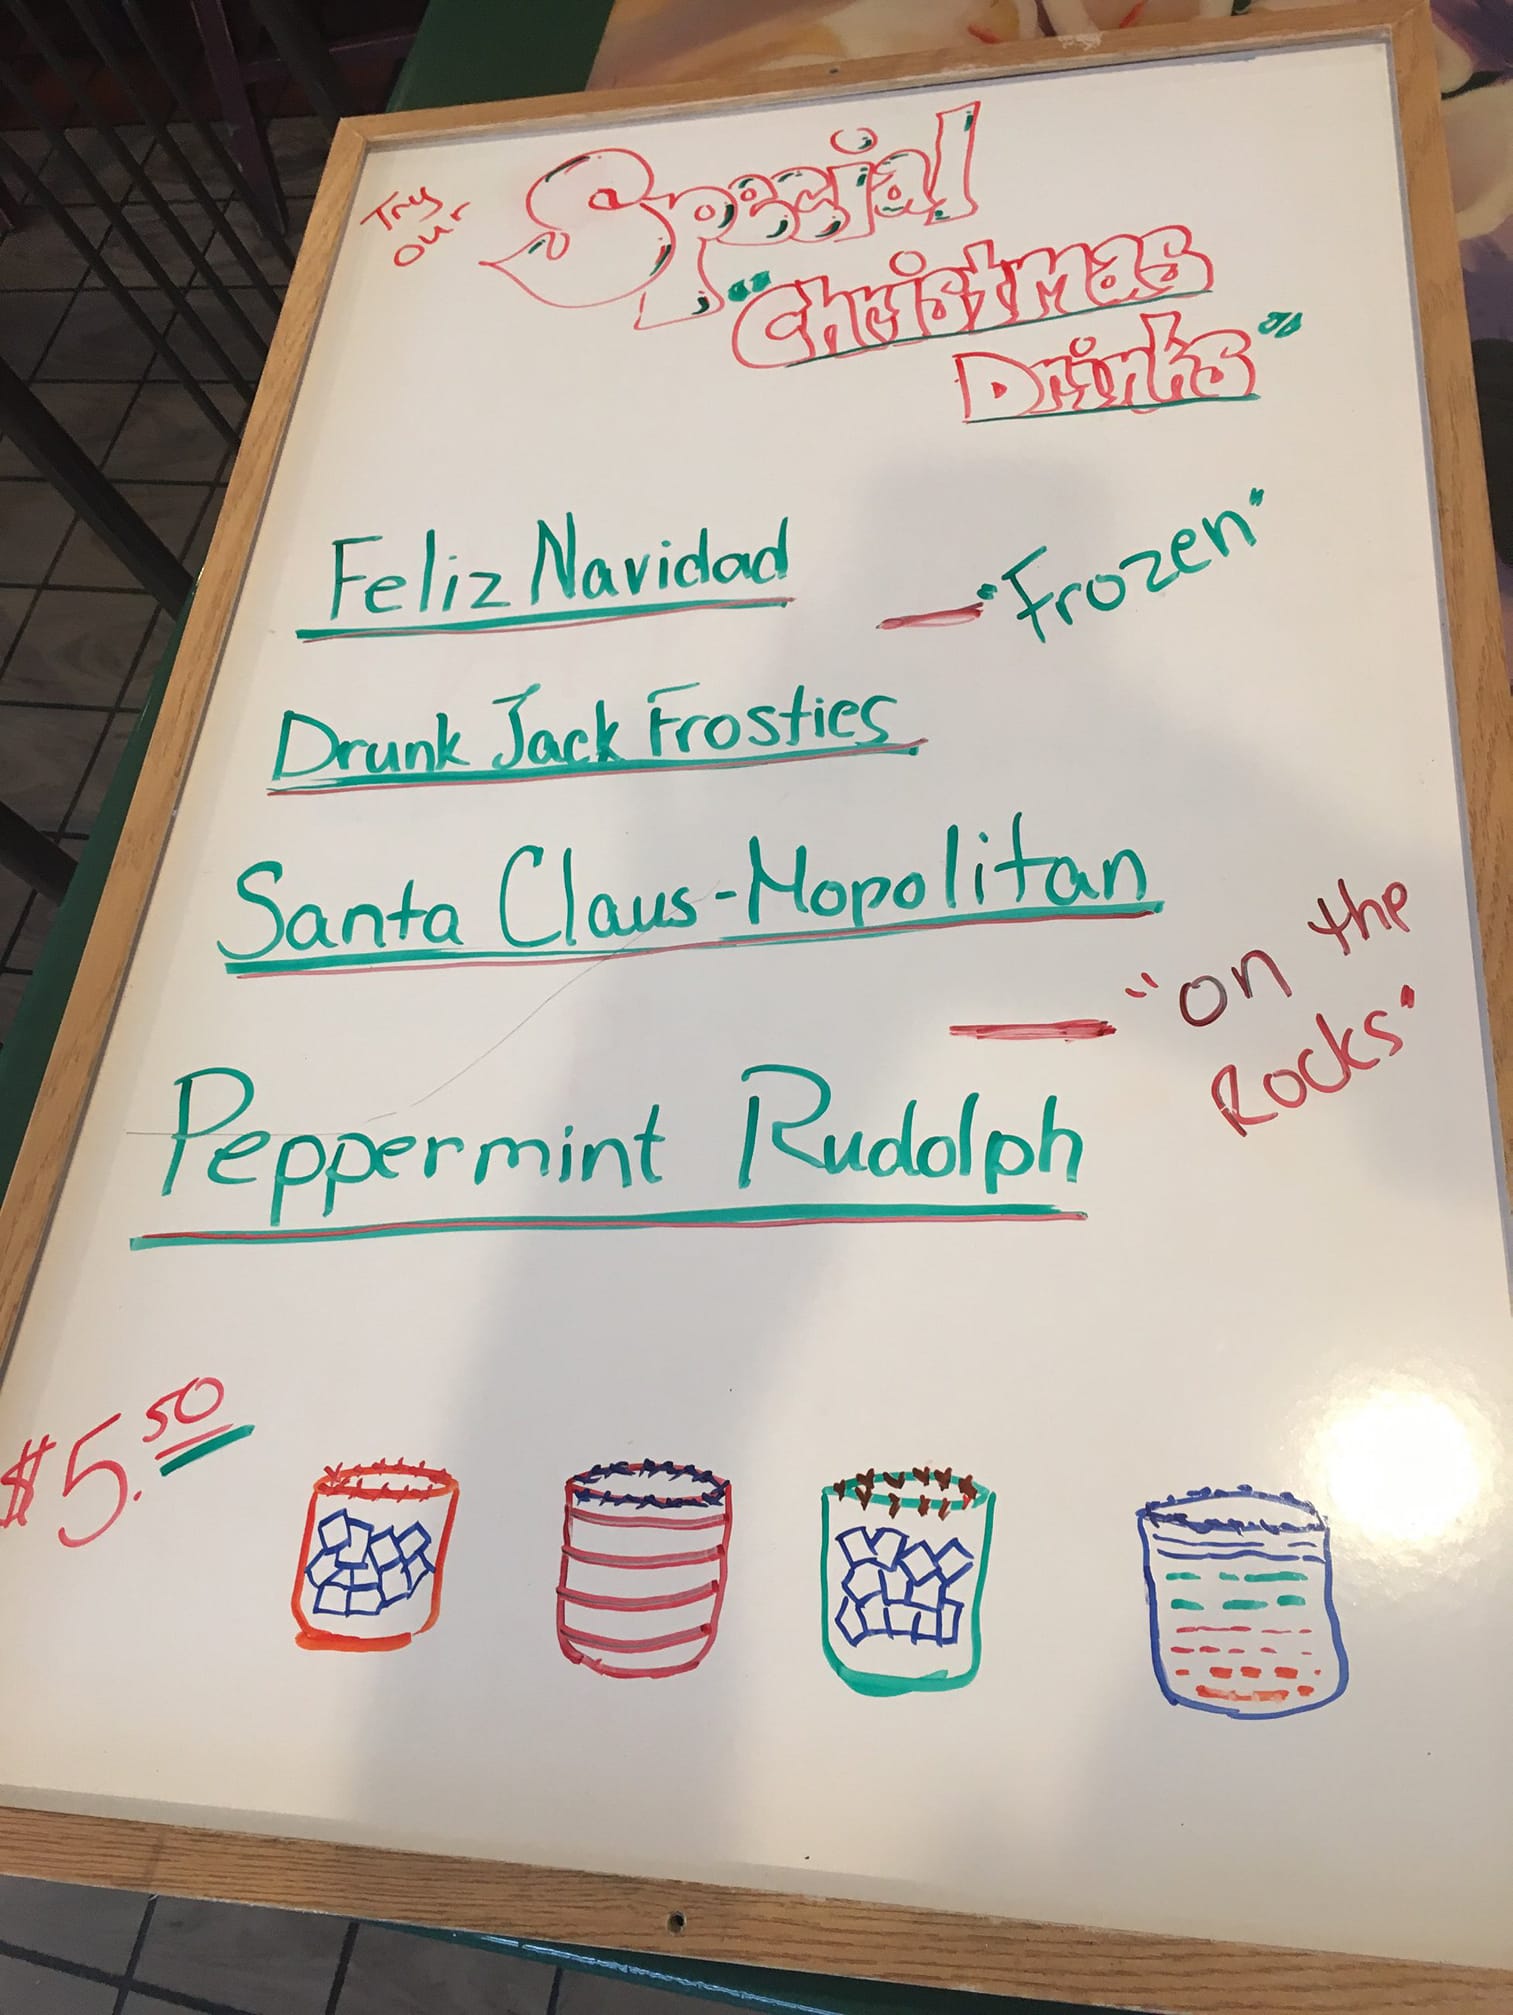 Try
our
Special
"Christmas
Drinks"
Feliz Navidad
"Frozen"
Drunk Jack Frosties
Santa Claus-Mopolitan
"on the
Rocks"
Peppermint Rudolph
$5.50